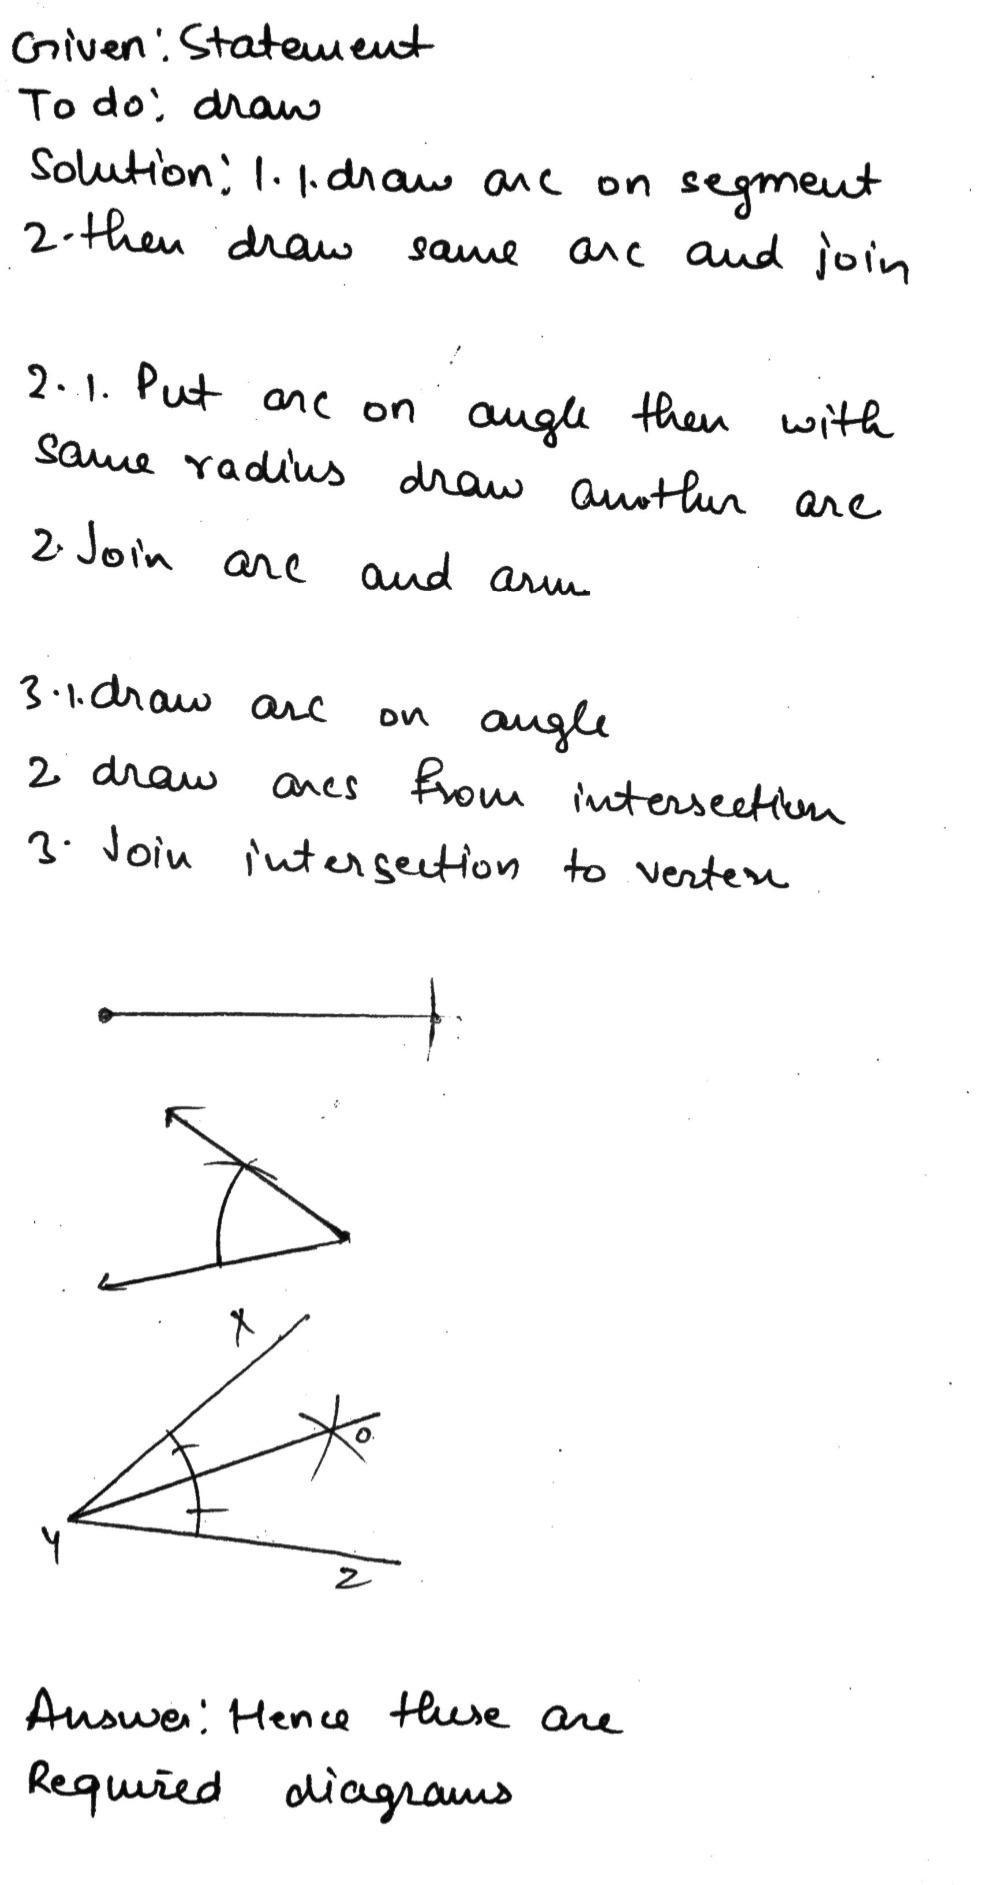 Given: Statement
To do: draw
Solution: 1. 1. draw arc on segment
2. then draw same arc and join
2. 1. Put arc on angle then with
same radius draw another arc
2. Join arc and arm
3. 1. draw arc on angle
2 draw arcs from intersection
3. Join intersection to vertex
X
O
Y
Z
Answer: Hence these are
Required diagrams